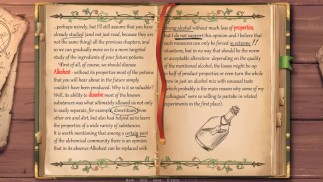 perhaps naively, but I'll still assume that you have
already studied (and not just read, because they are
not the same thing) all the previous chapters, and
so we can gradually move on to a more targeted
study of the ingredients of your future potions.
First of all, of course, we should discuss
Alkohest - without its properties most of the potions
that you will hear about in the future simply
couldn't have been produced. Why is it so valuable?
Well, its ability to dissolve most of the known
substances was what ultimately allowed us not only
to easily separate, for example, from
other ores and dirt, but also had helped us to learn
the properties of a wide variety of substances.
It is worth mentioning that among a certain part
of the alchemical community there is an opinion
that in its absence Alkohest can be replaced with
strong alcohol without much loss of properties,
but I do not support this opinion and I believe that
such measures can only be forced in extreme !!
situations, but in no way that should be the norm
or acceptable alteration: depending on the quality
of the mentioned alcohol, the losses might be up
to half of product properties or even turn the whole
brew in just an alcohol mix with unusual taste
(which probably is the main reason why some of my
"colleagues" were so willing to partake in related
experiments in the first place).